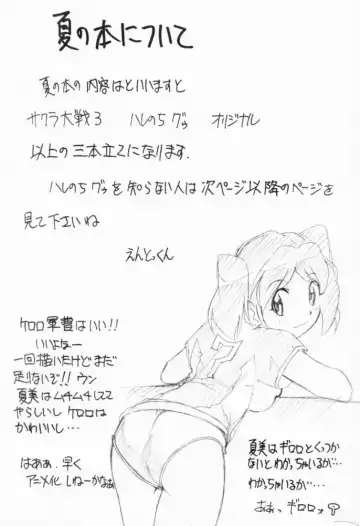 夏の本について
夏の本の内容はといいますと
サクラ大戦3 ハレのちグゥ オリジナル
以上の三本立てになります。
ハレのちグゥを知らない人は次ページ以降のページを
見て下さいね
えんどっくん
ケロロ軍曹はいい!!
いいよなー
一回描いたけどまだ
足りないぞ!! ウン
夏美はムチムチしてて
やらしいしケロロは
かわいいし…
はぁぁ、早く
アニメ化しねーかなぁ
夏美はギロロとくっつか
ないとわかっちゃいるが…
わかっちゃいるが…
あぁっ ギロロッ